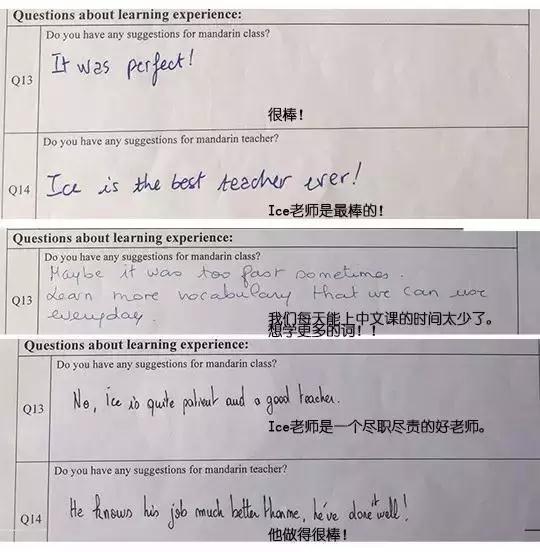 Questions about learning experience:
Do you have any suggestions for mandarin class?
Q13
It was perfect!
很棒！
Do you have any suggestions for mandarin teacher?
Q14
Ice is the best teacher ever!
Ice老师是最棒的！
Questions about learning experience:
Do you have any suggestions for mandarin class?
Maybe it was too fast sometimes.
Q13
Learn more vocabulary that we can use
everyday.
我们每天能上中文课的时间太少了。
想学更多的词！！
Questions about learning experience:
Do you have any suggestions for mandarin class?
Q13
No, ice is quite patient and a good teacher.
Ice老师是一个尽职尽责的好老师。
Do you have any suggestions for mandarin teacher?
Q14
He knows his job much better than me, he've done it well!
他做得很棒！